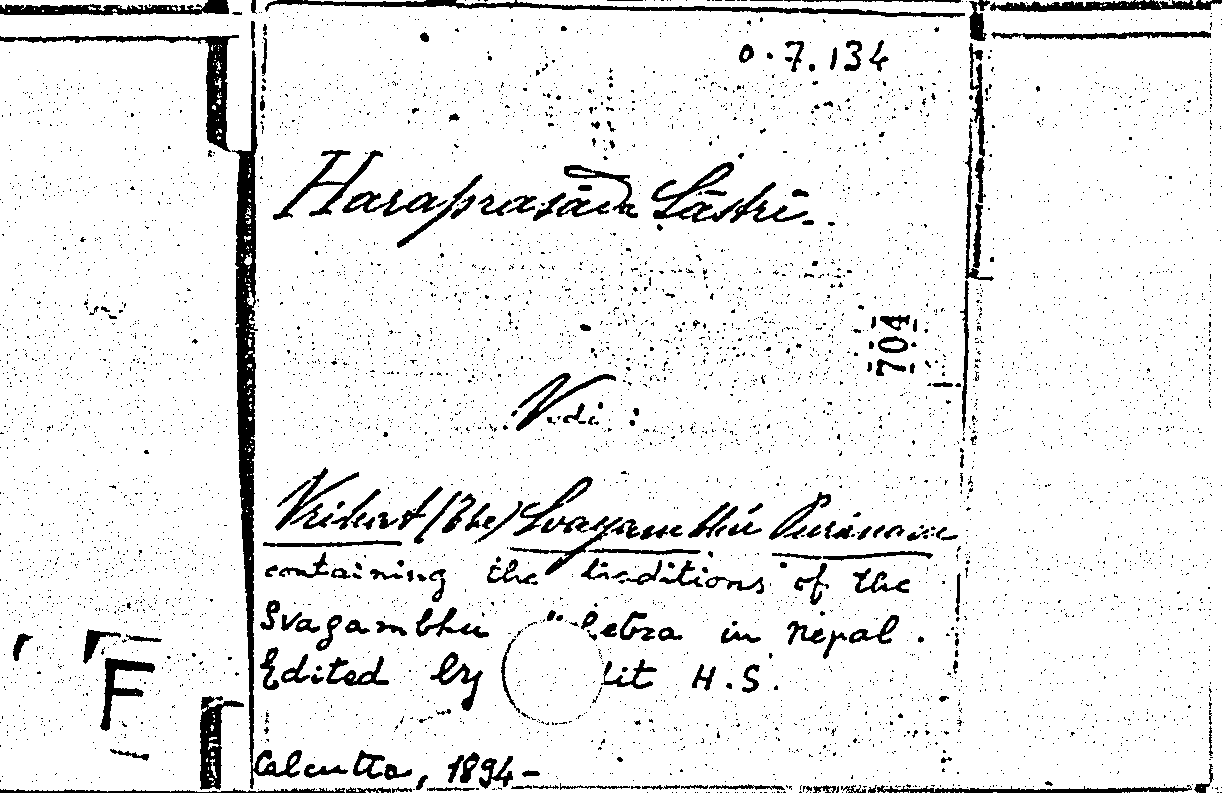 0.7.134
Haraprasāda Śāstrī.
704
Vdi :
Vrihat (The) Svayambhú Puránam
containing the traditions of the
Svayambhu "hetra in Nepal.
Edited by dit H.S.
Calcutta, 1894-
F